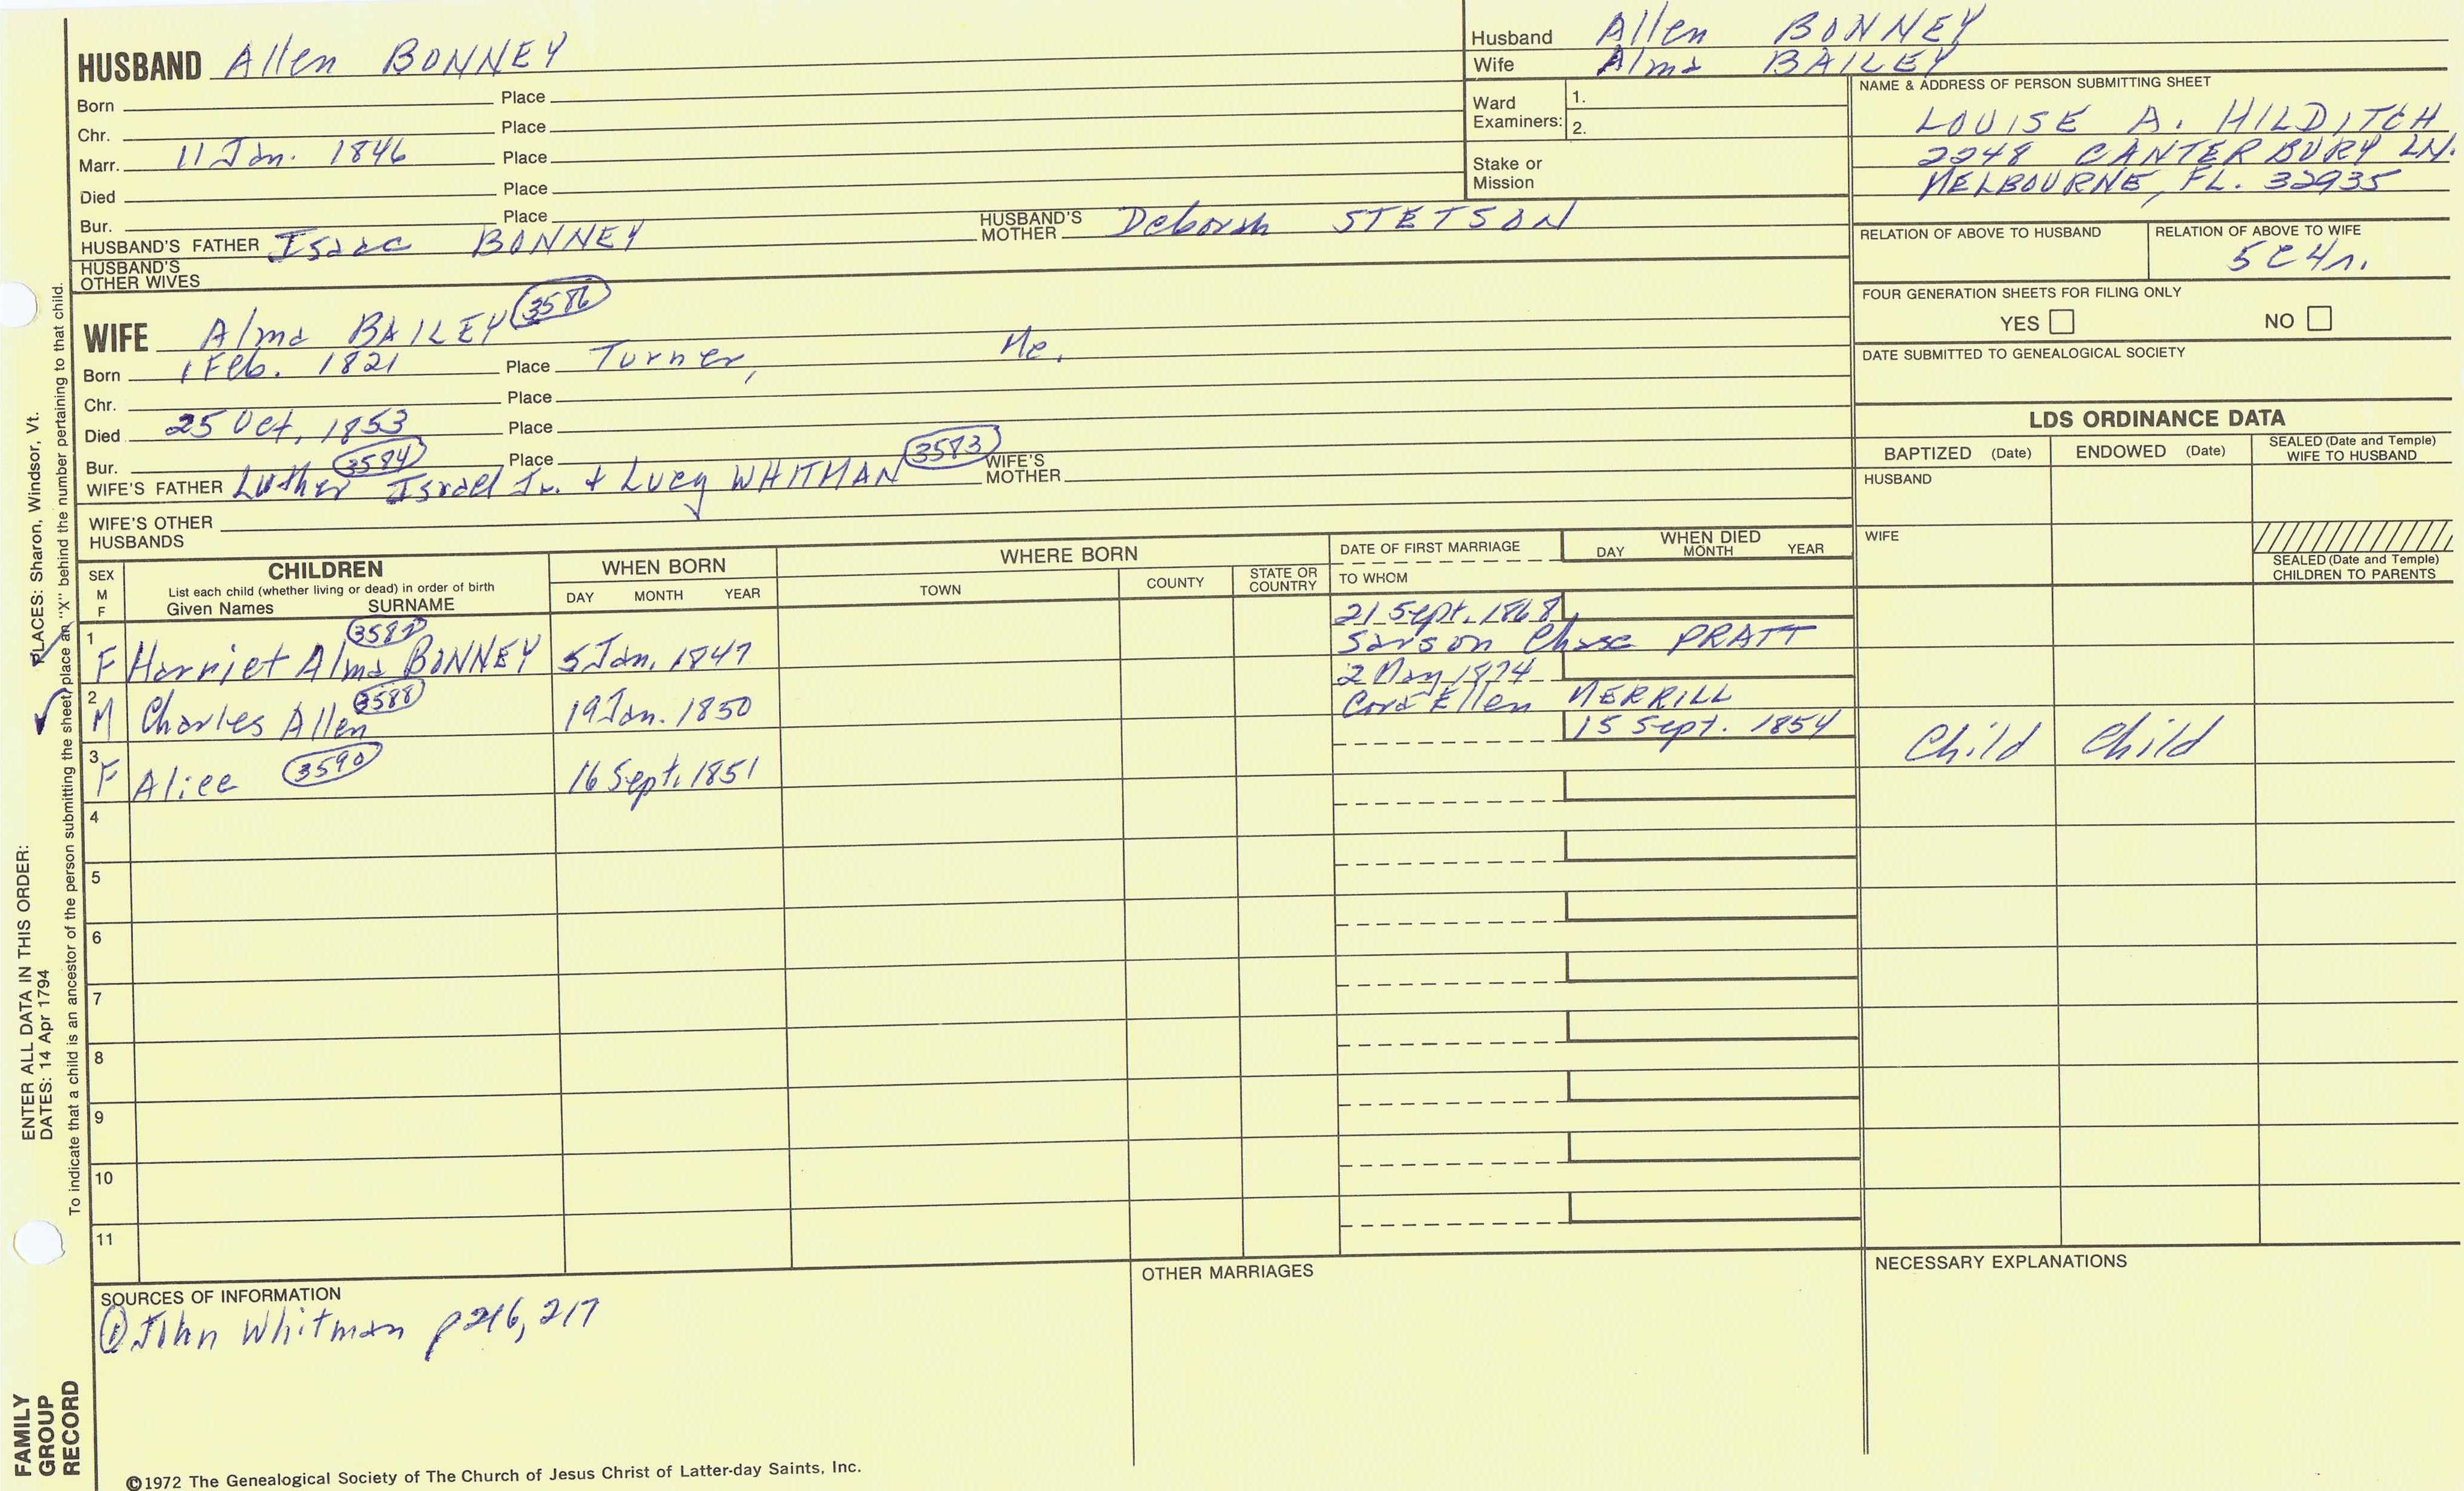 HUSBAND Allen BONNEY
Born Place
Chr. Place
Marr. 11 Jan. 1846 Place
Died Place
Bur. Place
HUSBAND'S FATHER Isaac BONNEY HUSBAND'S MOTHER Deborah STETSON
HUSBAND'S OTHER WIVES
WIFE Alma BAILEY 3586
Born 1 Feb. 1821 Place Turner, Me.
Chr. Place
Died 25 Oct, 1853 Place
Bur. Place
3584 3583
WIFE'S FATHER Luther Israel Jr. + Lucy WHITMAN WIFE'S MOTHER
WIFE'S OTHER HUSBANDS
Husband Allen BONNEY
Wife Alma BAILEY
Ward Examiners: 1.
2.
Stake or Mission
NAME & ADDRESS OF PERSON SUBMITTING SHEET
LOUISE A. HILDITCH
2248 CANTERBURY LN.
MELBOURNE, FL. 32935
RELATION OF ABOVE TO HUSBAND RELATION OF ABOVE TO WIFE
5C4r.
FOUR GENERATION SHEETS FOR FILING ONLY
YES NO
DATE SUBMITTED TO GENEALOGICAL SOCIETY
LDS ORDINANCE DATA
BAPTIZED (Date) ENDOWED (Date) SEALED (Date and Temple) WIFE TO HUSBAND
HUSBAND
WIFE
SEALED (Date and Temple) CHILDREN TO PARENTS
SEX M F CHILDREN WHEN BORN WHERE BORN DATE OF FIRST MARRIAGE WHEN DIED
List each child (whether living or dead) in order of birth
Given Names SURNAME DAY MONTH YEAR TOWN COUNTY STATE OR COUNTRY TO WHOM DAY MONTH YEAR
1 F Harriet Alma BONNEY 5 Jan. 1847 21 Sept. 1868
Sarson Chase PRATT
2 M Charles Allen 3588 19 Jan. 1850 2 May 1874
Cora Ellen MERRILL
3 F Alice 3590 16 Sept. 1851 15 Sept. 1854 Child Child
4
5
6
7
8
9
10
11
SOURCES OF INFORMATION
① John Whitman p216, 217
OTHER MARRIAGES
NECESSARY EXPLANATIONS
©1972 The Genealogical Society of The Church of Jesus Christ of Latter-day Saints, Inc.
FAMILY GROUP RECORD
ENTER ALL DATA IN THIS ORDER:
DATES: 14 Apr 1794 PLACES: Sharon, Windsor, Vt.
To indicate that a child is an ancestor of the person submitting the sheet, place an "X" behind the number pertaining to that child.